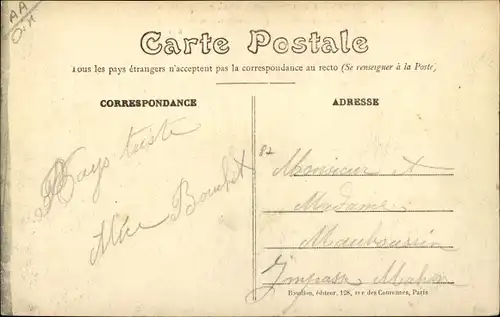 AA
Carte Postale
Tous les pays étrangers n'acceptent pas la correspondance au recto (Se renseigner à la Poste)
CORRESPONDANCE
ADRESSE
Pays triste
Mlle Bouchet
82
Monsieur &
Madame
Mauboussin
Impasse
édit​eur, 128, rue des Couronnes, Paris